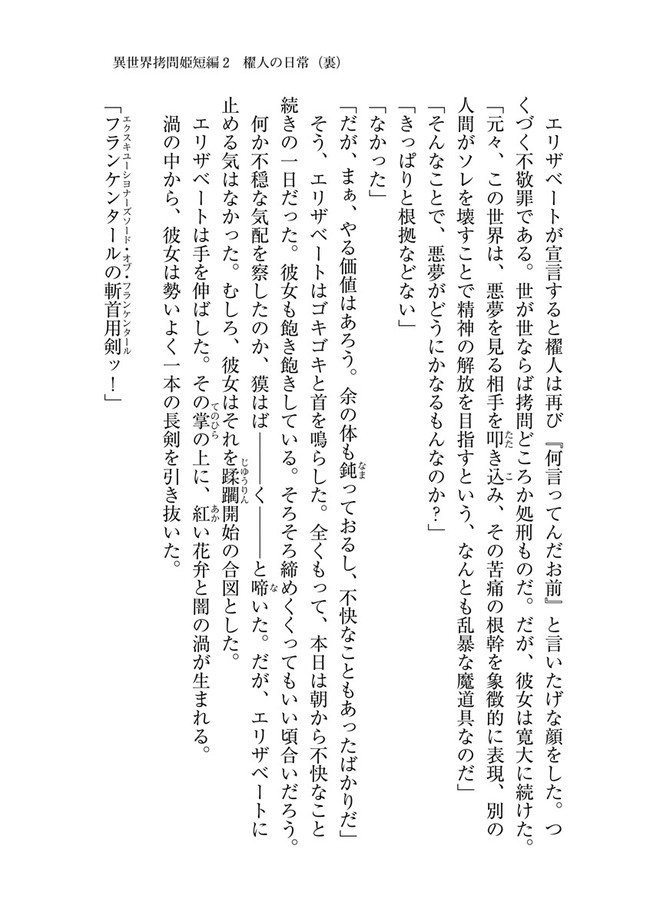 異世界拷問姫短編2 櫂人の日常（裏）
エリザベートが宣言すると櫂人は再び『何言ってんだお前』と言いたげな顔をした。つ
くづく不敬罪である。世が世ならば拷問どころか処刑ものだ。だが、彼女は寛大に続けた。
「元々、この世界は、悪夢を見る相手を叩き込み、その苦痛の根幹を象徴的に表現、別の
人間がソレを壊すことで精神の解放を目指すという、なんとも乱暴な魔道具なのだ」
「そんなことで、悪夢がどうにかなるもんなのか？」
「きっぱりと根拠などない」
「なかった」
「だが、まぁ、やる価値はあろう。余の体も鈍っておるし、不快なこともあったばかりだ」
そう、エリザベートはゴキゴキと首を鳴らした。全くもって、本日は朝から不快なこと
続きの一日だった。彼女も飽き飽きしている。そろそろ締めくくってもいい頃合いだろう。
何か不穏な気配を察したのか、獏はば――く――と啼いた。だが、エリザベートに
止める気はなかった。むしろ、彼女はそれを蹂躙開始の合図とした。
エリザベートは手を伸ばした。その掌の上に、紅い花弁と闇の渦が生まれる。
渦の中から、彼女は勢いよく一本の長剣を引き抜いた。
「フランケンタールの斬首用剣ッ！」
たた
こ
なま
な
じゆうりん
てのひら
あか
エクスキユーシヨナーズソード・オブ・フランケンタール